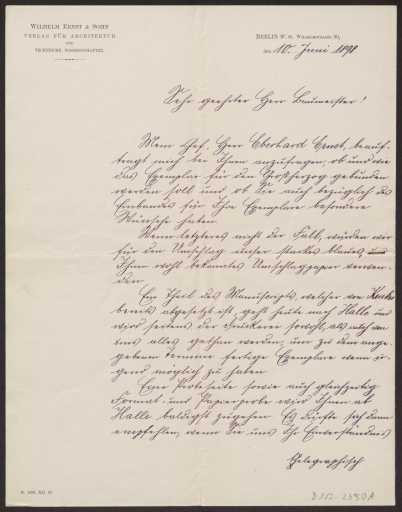 WILHELM ERNST & SOHN
VERLAG FÜR ARCHITEKTUR
UND
TECHNISCHE WISSENSCHAFTEN
BERLIN W. WILHELMSTRASSE 90,
DEN 10. Juni 1898
Sehr geehrter Herr Baumeister!
Mein Chef, Herr Eberhard Ernst, beauf-
tragt mich bei Ihnen anzufragen, ob und wie
das Exemplar für den Großherzog gebunden
werden soll und ob Sie auch bezüglich des
Einbandes für Ihre Exemplare besondere
Wünsche haben.
Wenn letzteres nicht der Fall, würden wir
für den Umschlag unser starkes blaues, und
Ihnen wohl bekanntes Umschlagpapier verwen-
den.
Ein Theil des Manuscripts, welcher von
bereits abgesetzt ist, geht heute nach Halle und
wird seitens der Druckerei sowohl, als auch von
uns alles gethan werden, um zu dem ange-
gebenen Termine fertige Exemplare wenn ir-
gend möglich zu haben.
Eine Probeseite sowie auch gleichzeitig
Format- und Papierprobe wird Ihnen ab
Halle baldigst zugehen. Es dürfte sich dann
empfehlen, wenn Sie uns Ihr Einverständnis
telegraphisch